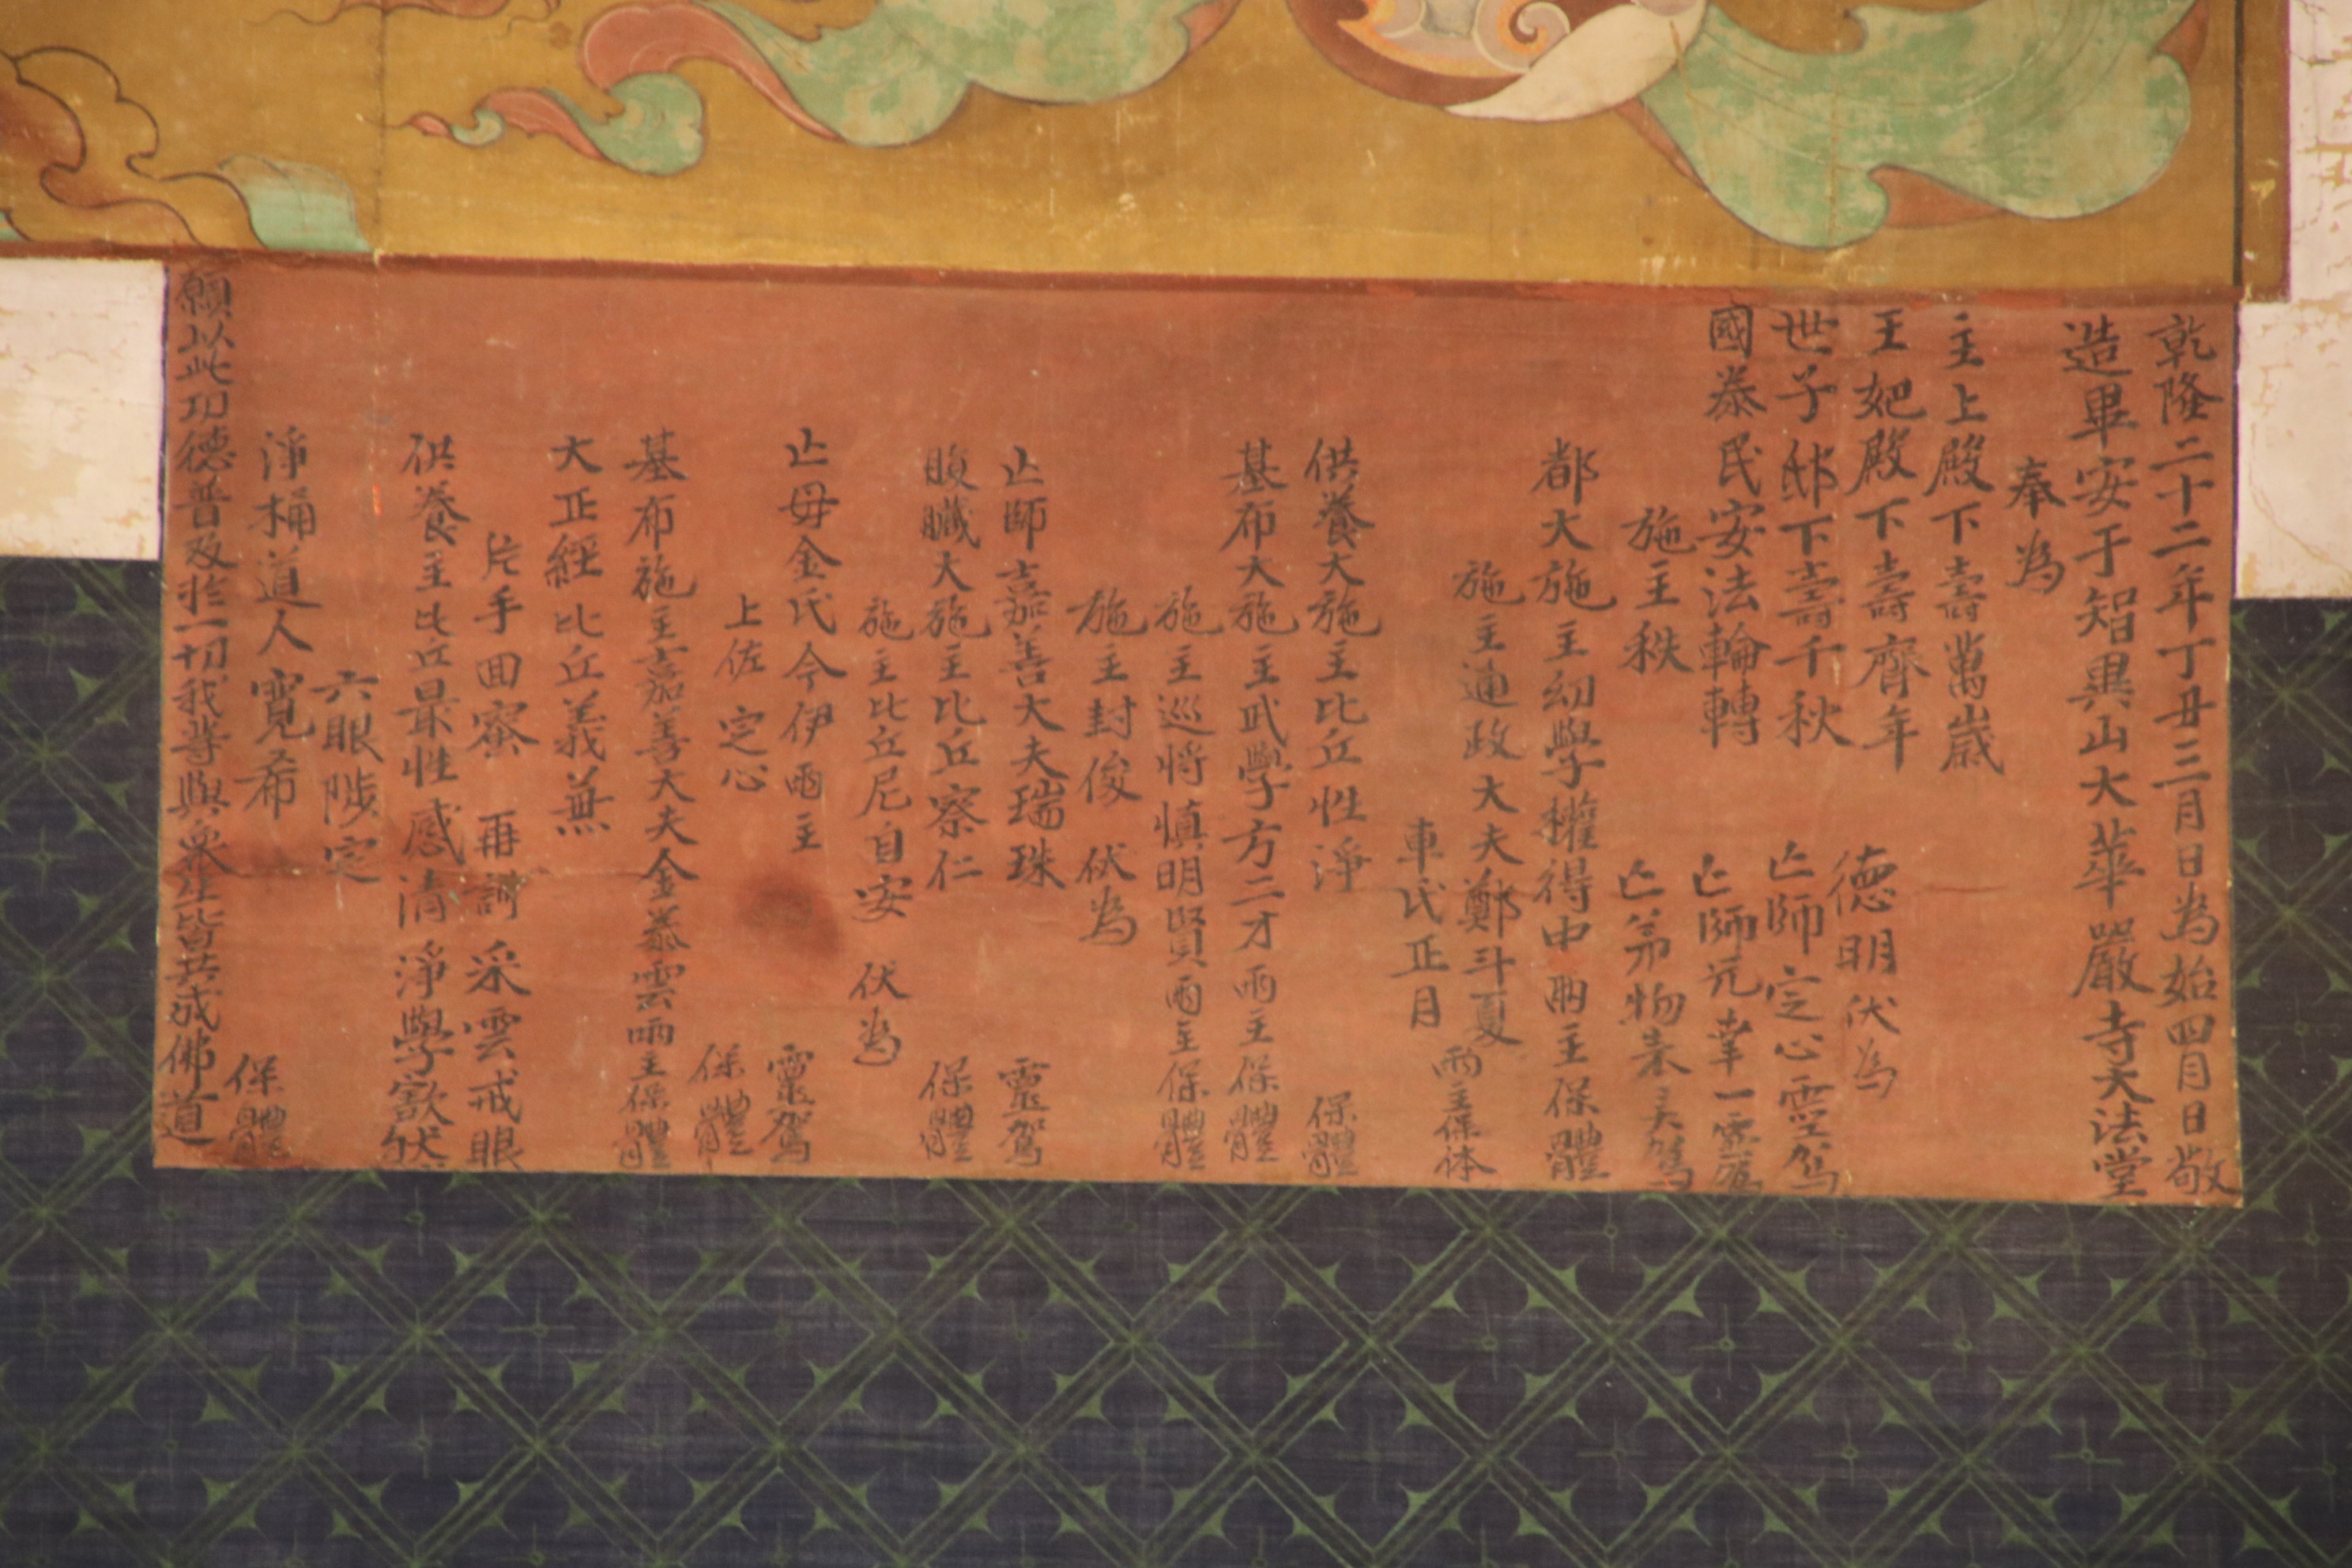 乾隆二十二年丁丑三月日為始四月日敬
造畢安于智異山大華嚴寺大法堂
奉為
主上殿下壽萬歲
王妃殿下壽齊年
德明伏為
世子邸下壽千秋
亡師定心靈駕
國泰民安法輪轉
亡師元幸一靈駕
施主秩
亡弟物
都大施主幼學權得中兩主保體
施主通政大夫鄭斗夏
車氏正月
兩主保体
供養大施主比丘性淨
保體
基布大施主武學方二才兩主保體
施主巡將慎明賢兩主保體
施主封俊 伏為
亡師嘉善大夫瑞珠
靈駕
腹臟大施主比丘察仁
保體
施主比丘尼自安 伏為
亡母金氏今伊兩主
靈駕
上佐 定心
保體
基布施主嘉善大夫金泰雲兩主保體
大正經比丘義兼
片手囬密 再訥 采雲 戒眼
供養主比丘最性 感清 淨學 伏
六眼 陟定
淨桶道人寬希
保體
願以此功德普及於一切我等與衆生皆共成佛道